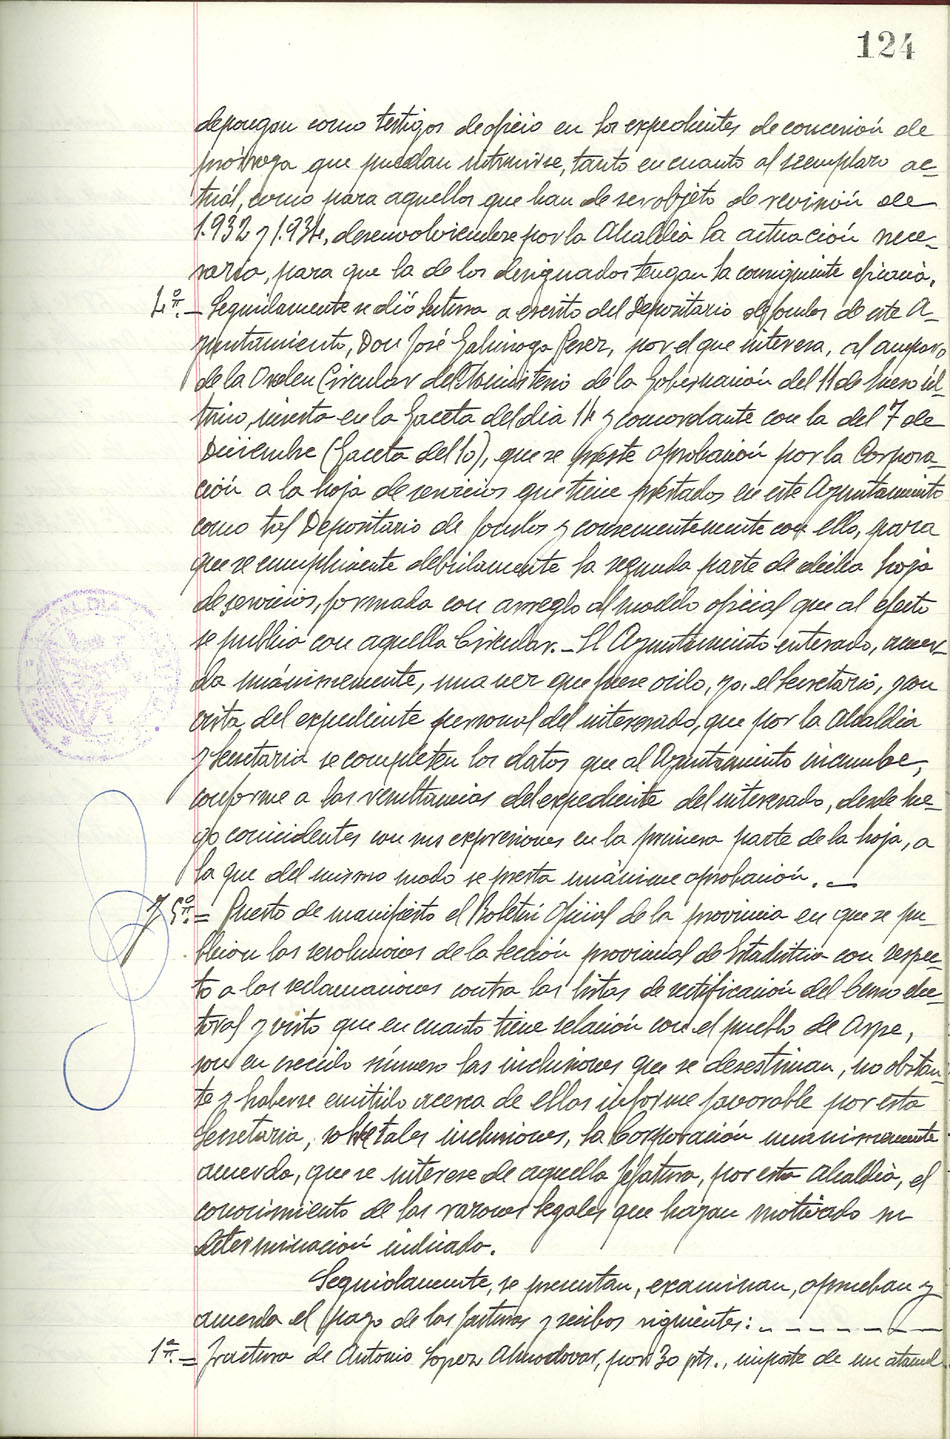 124
depongan como testigos de oficio en los expedientes de concesión de
prórroga que puedan instruirse, tanto en cuanto al reemplazo ac-
tuál, como para aquellos que han de ser objeto de revisión de
1.932 y 1.934, desenvolviendose por la Alcaldia la actuación nece-
saria, para que la de los designados tengan la consiguiente eficacia.
4º.- Seguidamente se dió lectura a escrito del Depositario de fondos de este A-
yuntamiento, Don José Galinsoga Perez, por el que interesa, al amparo
de la Orden Circular del Ministerio de la Gobernación del 11 de Enero úl-
timo, inserta en la Gaceta del dia 14 y concordante con la del 7 de
Diciembre (Gaceta del 10), que se preste aprobación por la Corpora-
ción a la hoja de servicios que tiene prestados en este Ayuntamiento
como tal Depositario de fondos y consecuentemente con ello, para
que se cumplimente debidamente la segunda parte de dicha hoja
de servicios, formada con arreglo al modelo oficial que al efecto
se publicó con aquella Circular.- El Ayuntamiento enterado, acuer-
da unánimemente, una vez que fuese oido, yo, el Secretario, y con
vista del expediente personal del interesado, que por la Alcaldia
y Secretaria se completen los datos que al Ayuntamiento incumbe,
conforme a las resultancias del expediente del interesado, desde lue-
go coincidentes con sus expresiones en la primera parte de la hoja, a
la que del mismo modo se presta unánime aprobación.-
Y 5º.= Puesto de manifiesto el Boletin Oficial de la provincia en que se pu-
blican las resoluciones de la Sección provincial de Estadistica con respec-
to a las reclamaciones contra las listas de rectificación del Censo elec-
toral y visto que en cuanto tiene relación con el pueblo de Aspe,
son en crecido número las inclusiones que se desestiman, no obstan-
te y haberse emitido acerca de ellas informe favorable por esta
Secretaria, sobre tales inclusiones, la Corporación unánimemente
acuerda, que se interese de aquella Jefatura, por esta Alcaldia, el
conocimiento de las razones legales que hayan motivado su
determinación indicada.
Seguidamente, se presentan, examinan, aprueban y
acuerda el pago de las facturas y recibos siguientes:- - - - - -
1ª.= Factura de Antonio Lopez Almodovar, por 30 pts., importe de un ataud
ALCALDIA